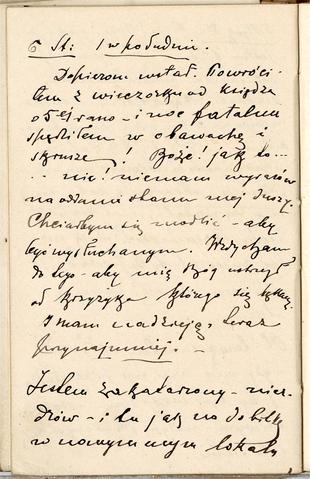 6 St: 1 w południe.
Dopierom wstał. Powróci-
łem z wieczorku od księdza
o 5ej rano - i noc fatalną
spędziłem w obawach i
skrusze! Boże! jak to...
... nie! niemam wyrazów
na oddanie stanu mej duszy.
Chciałbym się modlić - aby
być wysłuchanym. Wzdycham
do tego - aby mię Bóg ustrzegł
od krzyżyka którego się lękam.
I mam nadzieję, teraz
przynajmniej. -
Jestem zakatarzony - niez-
drów - i tu jak na dobitkę
w nowym mym lokalu